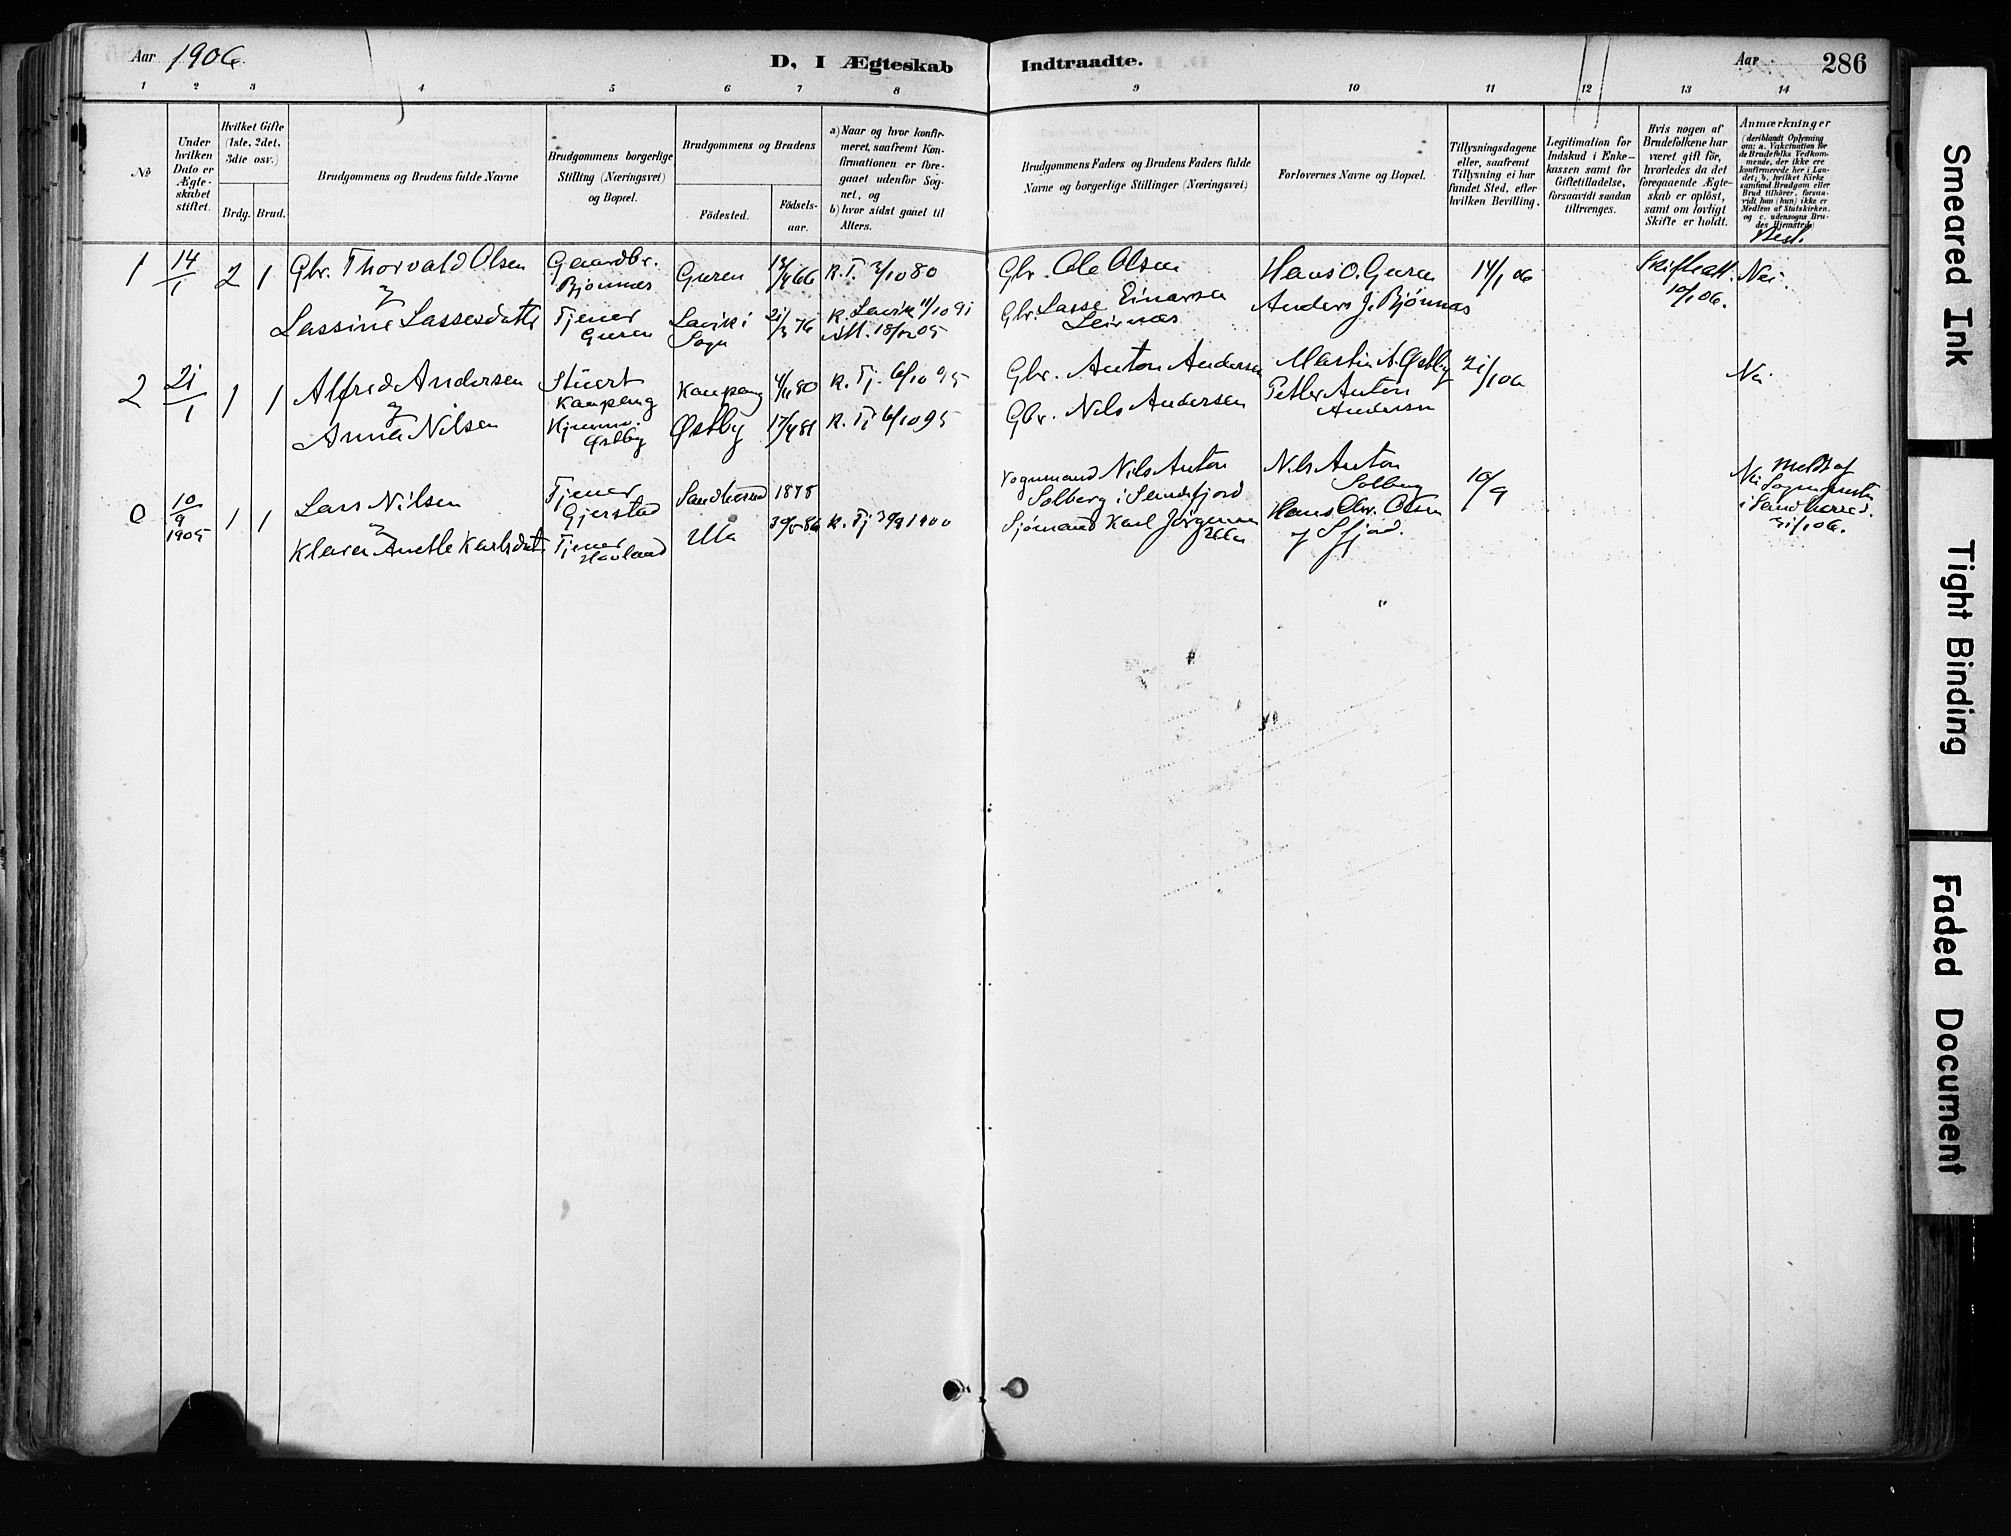 Aar 1906. D, I Ægteskab Indtraadte. Aar 286
1 2 3 4 5 6 7 8 9 10 11 12 13 14
No
Under hvilken Dato er Ægteskabet stiftet.
Hvilket Gifte (1ste, 2det, 3die osv.)
Brdg. Brud.
Brudgommens og Brudens fulde Navne
Brudgommens borgerlige Stilling (Næringsvei) og Bopæl.
Brudgommens og Brudens
Födested.
Födsels-aar.
a) Naar og hvor konfir-
meret, saafremt Kon-
firmationen er fore-
gaaet udenfor Sog-
net, og
b) hvor sidst gaaet til
Alters.
Brudgommens Faders og Brudens Faders fulde
Navne og borgerlige Stillinger (Næringsvei)
Forlovernes Navne og Bopæl.
Tillysningsdagene
eller, saafremt
Tillysning ei har
fundet Sted, efter
hvilken Bevilling.
Legitimation for
Indskud i Enke-
kassen samt for
Giftetilladelse,
forsaavidt saadan
tiltrænges.
Hvis nogen af
Brudefolkene har
været gift för,
hvorledes da det
foregaaende Ægte-
skab er oplöst,
samt om lovligt
Skifte er holdt.
Anmærkninger
(deriblandt Oplysning
om: a. Vakcination for
de Brudefolks Vedkom-
mende, der ikke ere
konfirmerede her i Lan-
det; b. hvilket Kirke-
samfund Brudgom eller
Brud tilhörer, forsaa-
vidt han (hun) ikke er
Medlem af Statskirken.
og c. udensogns Bru-
des Hjemsted)
Besl.
1 14/1 2 1 Gbr. Thorvald Olsen
Gaardbr. Bjønnes
Guren 18/4 66 K. T. 3/10 80
Gbr. Ole Olsen
Hans O. Guren
14/1 06
Skifteatt. 10/1 06.
Nei.
Lassine Lassesdatter
Tjener Guren
Lavik i Sogn
21/3 76
K. Lavik 11/10 91
Gbr. Lasse Einarsen Leirnæs
Anders J. Bjønnes
2 21/1 1 1 Alfred Andersen
Stuert Kaupang
Kaupang 4/11 80 K. Tj. 6/10 95
Gbr. Anton Andersen
Martin A. Østby
21/1 06
Nei
Anna Nilsen
Østby
Østby 17/4 81 K. Tj. 6/10 95
Gbr. Nils Andersen
Petter Anton Andersen
0 10/9 1905 1 1 Lars Nilsen
Tjener Gjerstad
Sandherred 1878
Vognmand Nils Anton
Solberg i Sandefjord
Nils Anton Solberg
10/9
Nei Meldt af
Sognepresten
i Sandherred.
31/1 06.
Klara Anette Karlsdatter
Tjener Havland
Ula
30/5 84 K. Tj 30/9 1900
Sjømand Karl Jørgensen Ula
Hans Chr. Olsen
af Sfjord.
Smeared Ink
Tight Binding
Faded Document